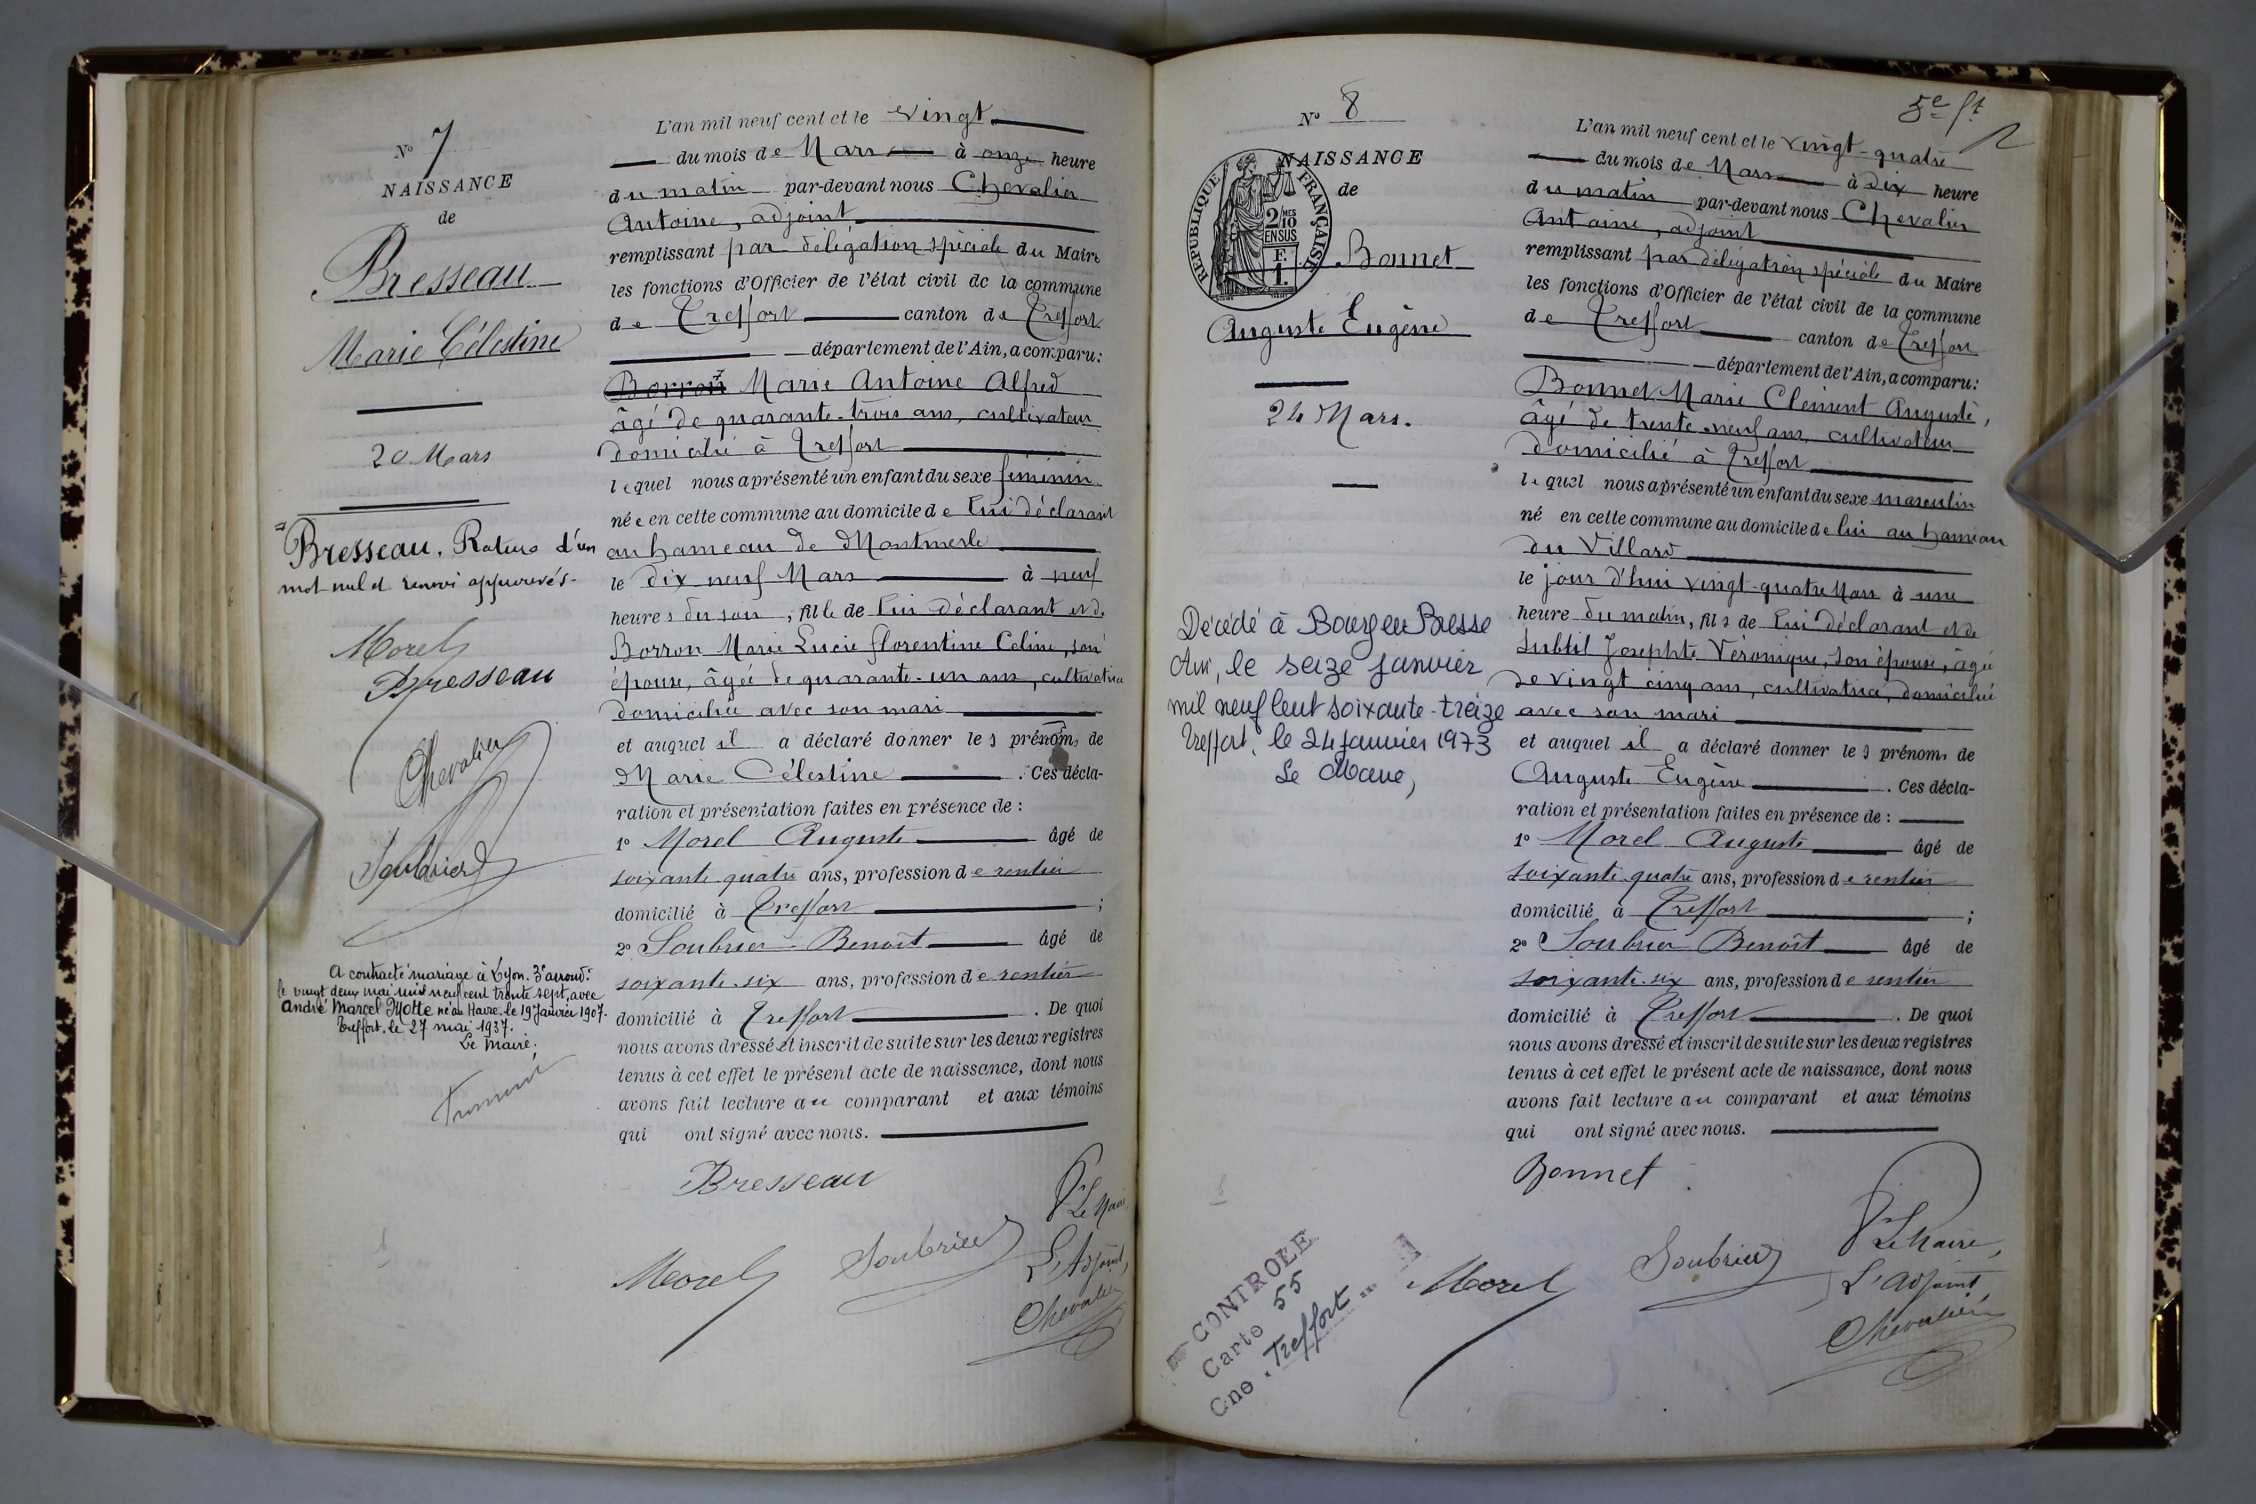 N° 7
NAISSANCE
de
Bresseau
Marie Célestine
20 Mars
Bresseau. Rature d'un
mot nul et renvoi approuvés.
Morel
Bresseau
Chevalier
Soubrier
A contracté mariage à Lyon. 3e arrondt
le vingt deux mai mil neuf cent trente sept, avec
André Marcel Motte né au Havre. le 19 Janvier 1907.
Treffort. le 27 mai 1937.
Le Maire.
L'an mil neuf cent et le vingt
du mois de Mars à onze heure
du matin par-devant nous Chevalier
Antoine, adjoint
remplissant par délégation spéciale du Maire
les fonctions d'Officier de l'état civil de la commune
de Treffort canton de Treffort
département de l'Ain, a comparu:
Borron Marie Antoine Alfred
âgé de quarante-trois ans, cultivateur
domicilié à Treffort
lequel nous a présenté un enfant du sexe féminin
née en cette commune au domicile de lui déclarant
au hameau de Montmerle
le dix neuf Mars à neuf
heures du soir, fille de lui déclarant et de
Borron Marie Lucie Florentine Celine, son
épouse, âgée de quarante-un ans, cultivatrice
domiciliée avec son mari
et auquel il a déclaré donner les prénoms de
Marie Célestine. Ces décla-
ration et présentation faites en présence de :
1° Morel Auguste âgé de
soixante quatre ans, profession de rentier
domicilié à Treffort ;
2° Soubrier Benoît âgé de
soixante-six ans, profession de rentier
domicilié à Treffort. De quoi
nous avons dressé et inscrit de suite sur les deux registres
tenus à cet effet le présent acte de naissance, dont nous
avons fait lecture au comparant et aux témoins
qui ont signé avec nous.
Bresseau
Pr Le Maire
L'Adjoint,
Morel Soubrier Chevalier
5e ft
N° 8
NAISSANCE
de
RÉPUBLIQUE FRANÇAISE
2/10MES
EN SUS
F.
1.
Bonnet
Auguste Eugène
24 Mars.
Décédé à Bourg en Bresse
Ain, le seize janvier
mil neuf cent soixante-treize
Treffort, le 24 janvier 1973
Le Maire,
L'an mil neuf cent et le vingt-quatre
du mois de Mars à dix heure
du matin par-devant nous Chevalier
Antoine, adjoint
remplissant par délégation spéciale du Maire
les fonctions d'Officier de l'état civil de la commune
de Treffort canton de Treffort
département de l'Ain, a comparu:
Bonnet Marie Clément Auguste,
âgé de trente-neuf ans, cultivateur
domicilié à Treffort
lequel nous a présenté un enfant du sexe masculin
né en cette commune au domicile de lui au hameau
du Villard
le jour d'hui vingt-quatre Mars à une
heure du matin, fils de lui déclarant et de
Subtil Josephte Véronique, son épouse, âgée
de vingt cinq ans, cultivatrice, domiciliée
avec son mari
et auquel il a déclaré donner les prénoms de
Auguste Eugène. Ces décla-
ration et présentation faites en présence de :
1° Morel Auguste âgé de
soixante quatre ans, profession de rentier
domicilié à Treffort ;
2° Soubrier Benoît âgé de
soixante-six ans, profession de rentier
domicilié à Treffort. De quoi
nous avons dressé et inscrit de suite sur les deux registres
tenus à cet effet le présent acte de naissance, dont nous
avons fait lecture au comparant et aux témoins
qui ont signé avec nous.
Bonnet
Pr Le Maire,
L'Adjoint
Morel Soubrier Chevalier
CONTROLEE
Carte 55
Cne. Treffort